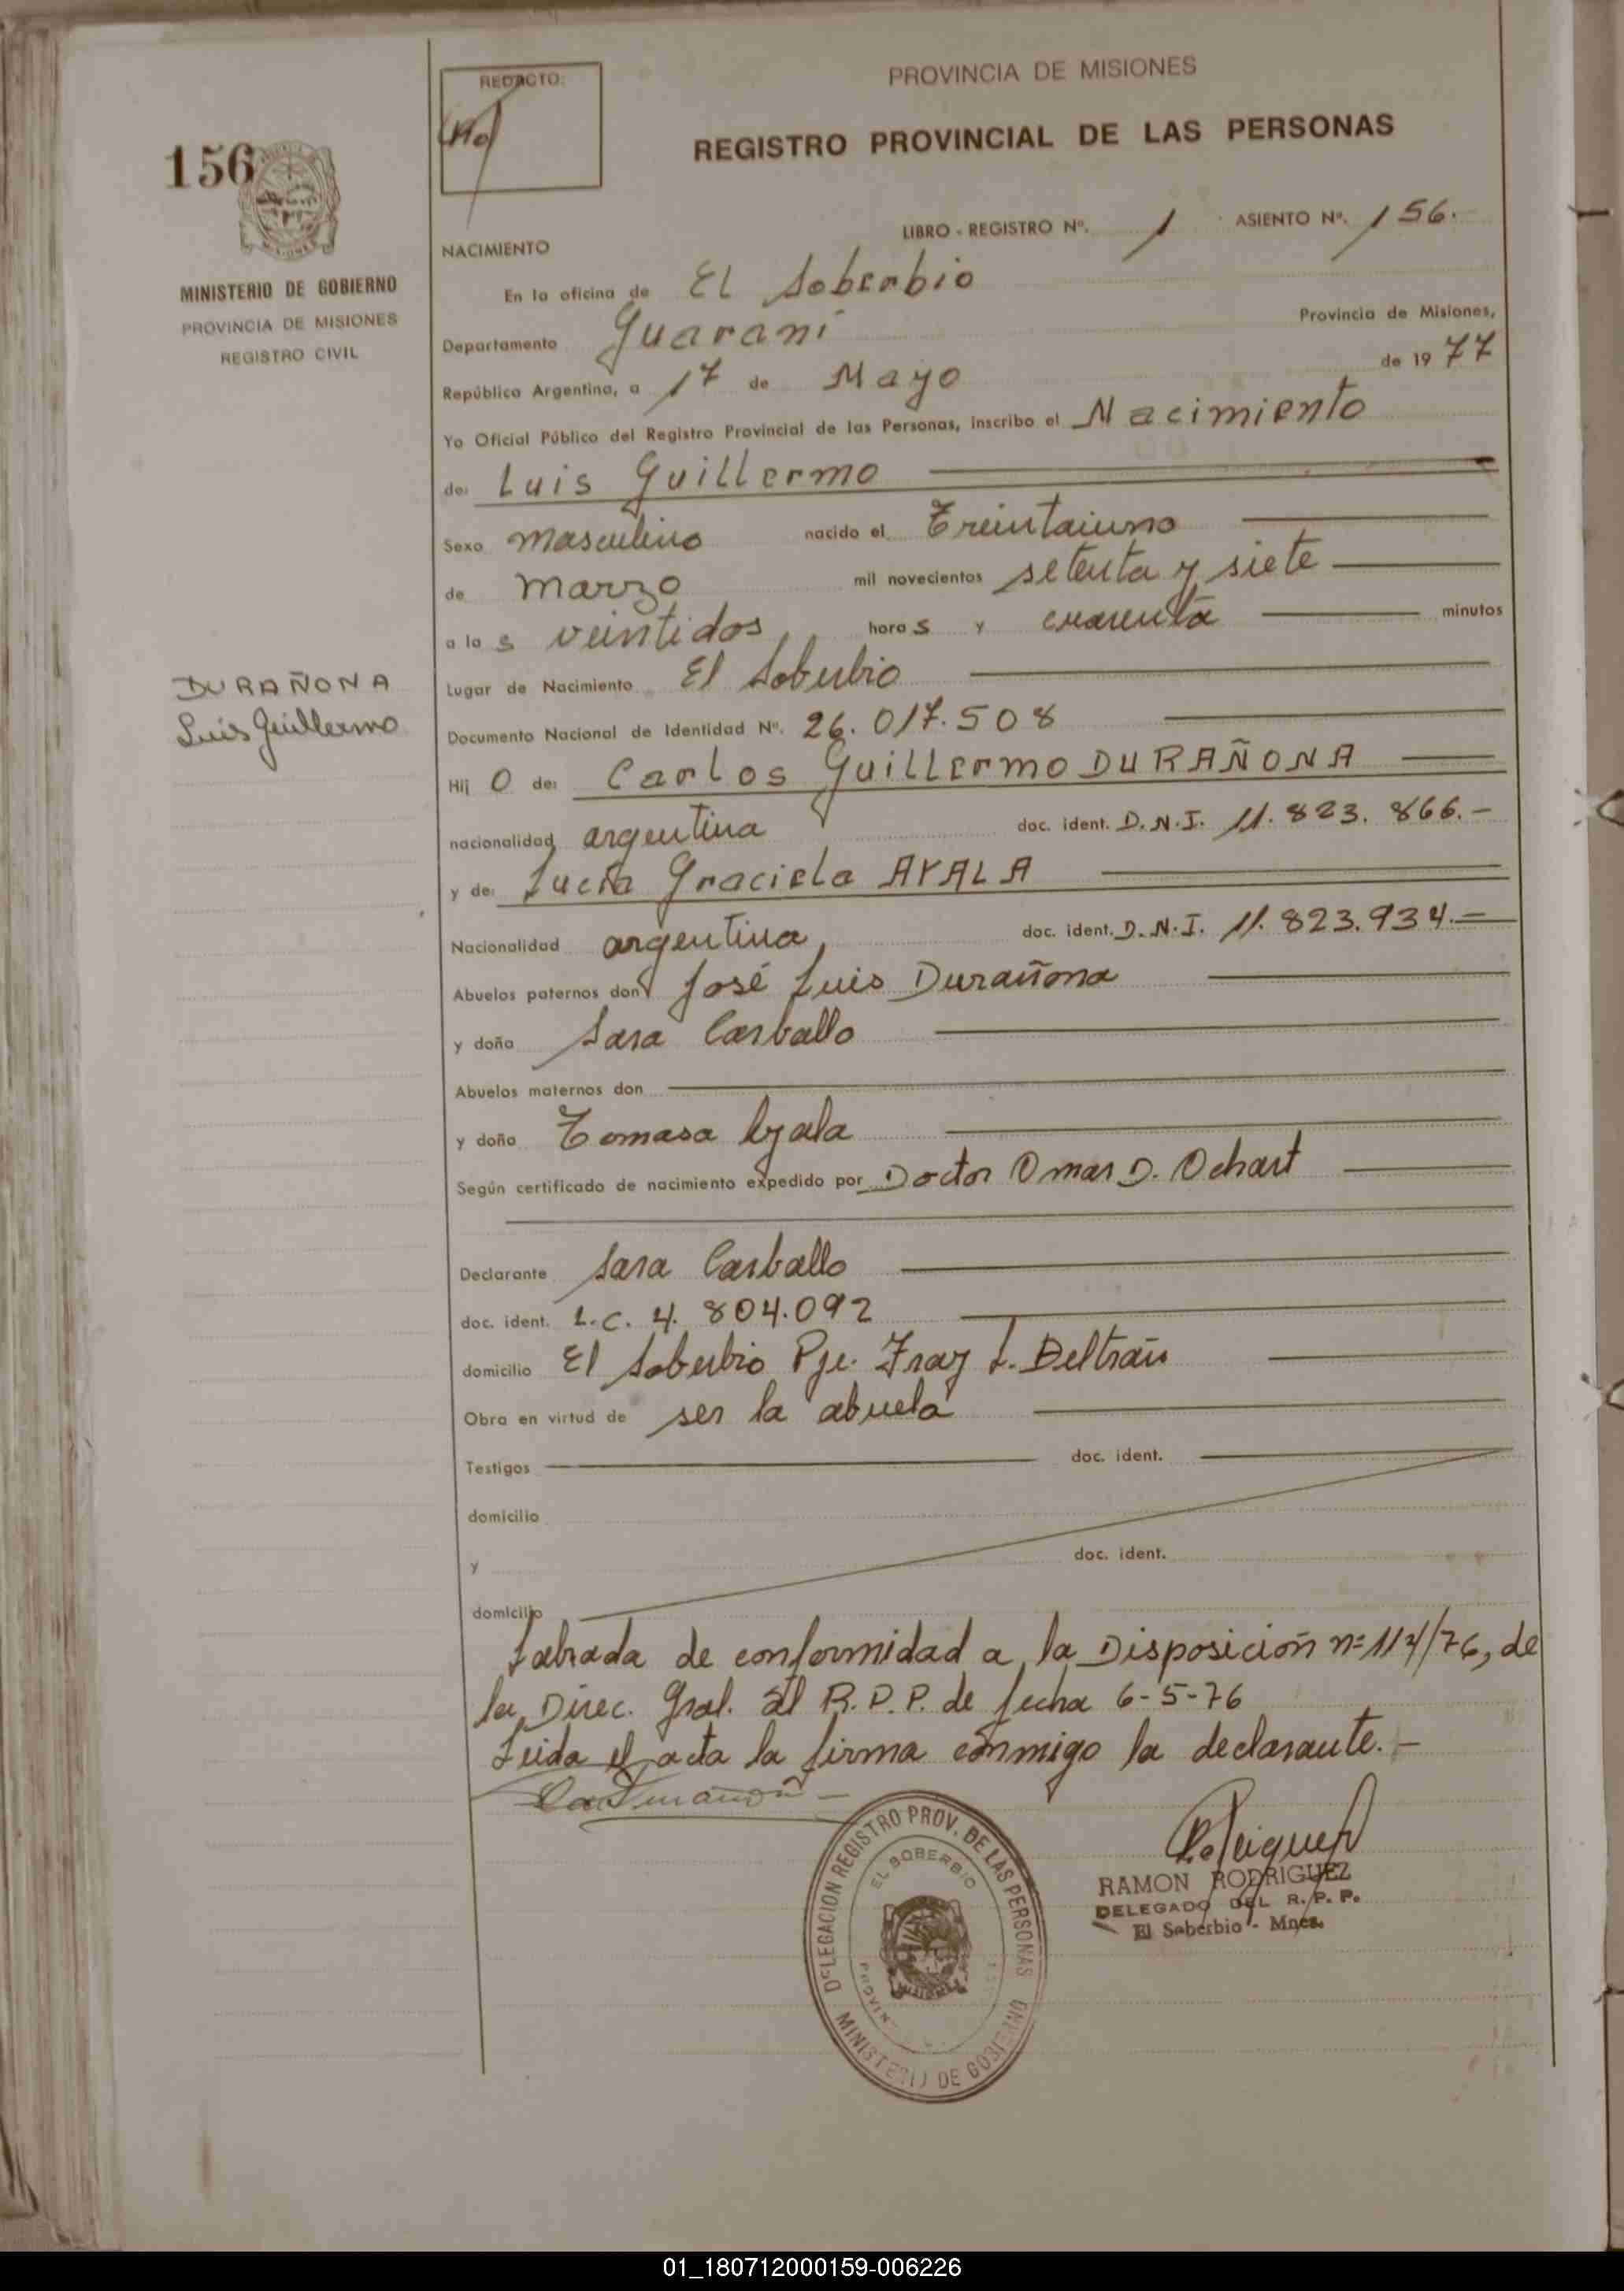 156
MINISTERIO DE GOBIERNO
PROVINCIA DE MISIONES
REGISTRO CIVIL
DURAÑONA
Luis Guillermo
REDACTO:
PROVINCIA DE MISIONES
REGISTRO PROVINCIAL DE LAS PERSONAS
LIBRO - REGISTRO Nº. 1 ASIENTO Nº. 156.
NACIMIENTO
En la oficina de El Soberbio
Departamento Guaraní Provincia de Misiones,
República Argentina, a 17 de Mayo de 1977
Yo Oficial Público del Registro Provincial de las Personas, inscribo el Nacimiento
de: Luis Guillermo
Sexo masculino nacido el Treintaiuno
de marzo mil novecientos setenta y siete
a las veintidos horas y cuarenta minutos
Lugar de Nacimiento El Soberbio
Documento Nacional de Identidad Nº. 26.017.508
Hijo de: Carlos Guillermo DURAÑONA
nacionalidad argentina doc. ident. D.N.I. 11.823.866.-
y de: Lucía Graciela AYALA
Nacionalidad argentina, doc. ident. D.N.I. 11.823.934.-
Abuelos paternos don José Luis Durañona
y doña Sara Carballo
Abuelos maternos don
y doña Tomasa Ayala
Según certificado de nacimiento expedido por Doctor Omar D. Ochart
Declarante Sara Carballo
doc. ident. L.C. 4.804.092
domicilio El Soberbio Pje. Fray L. Beltrán
Obra en virtud de ser la abuela
Testigos doc. ident.
domicilio
y doc. ident.
domicilio
Labrada de conformidad a la Disposición nº 114/76, de
la Direc. Gral. del R.P.P. de fecha 6-5-76
Leida el acta la firma conmigo la declarante.-
DELEGACION REGISTRO PROV. DE LAS PERSONAS
EL SOBERBIO
MISIONES
MINISTERIO DE GOBIERNO
RAMON RODRIGUEZ
DELEGADO DEL R. P. P.
El Soberbio - Mnes.
01_180712000159-006226